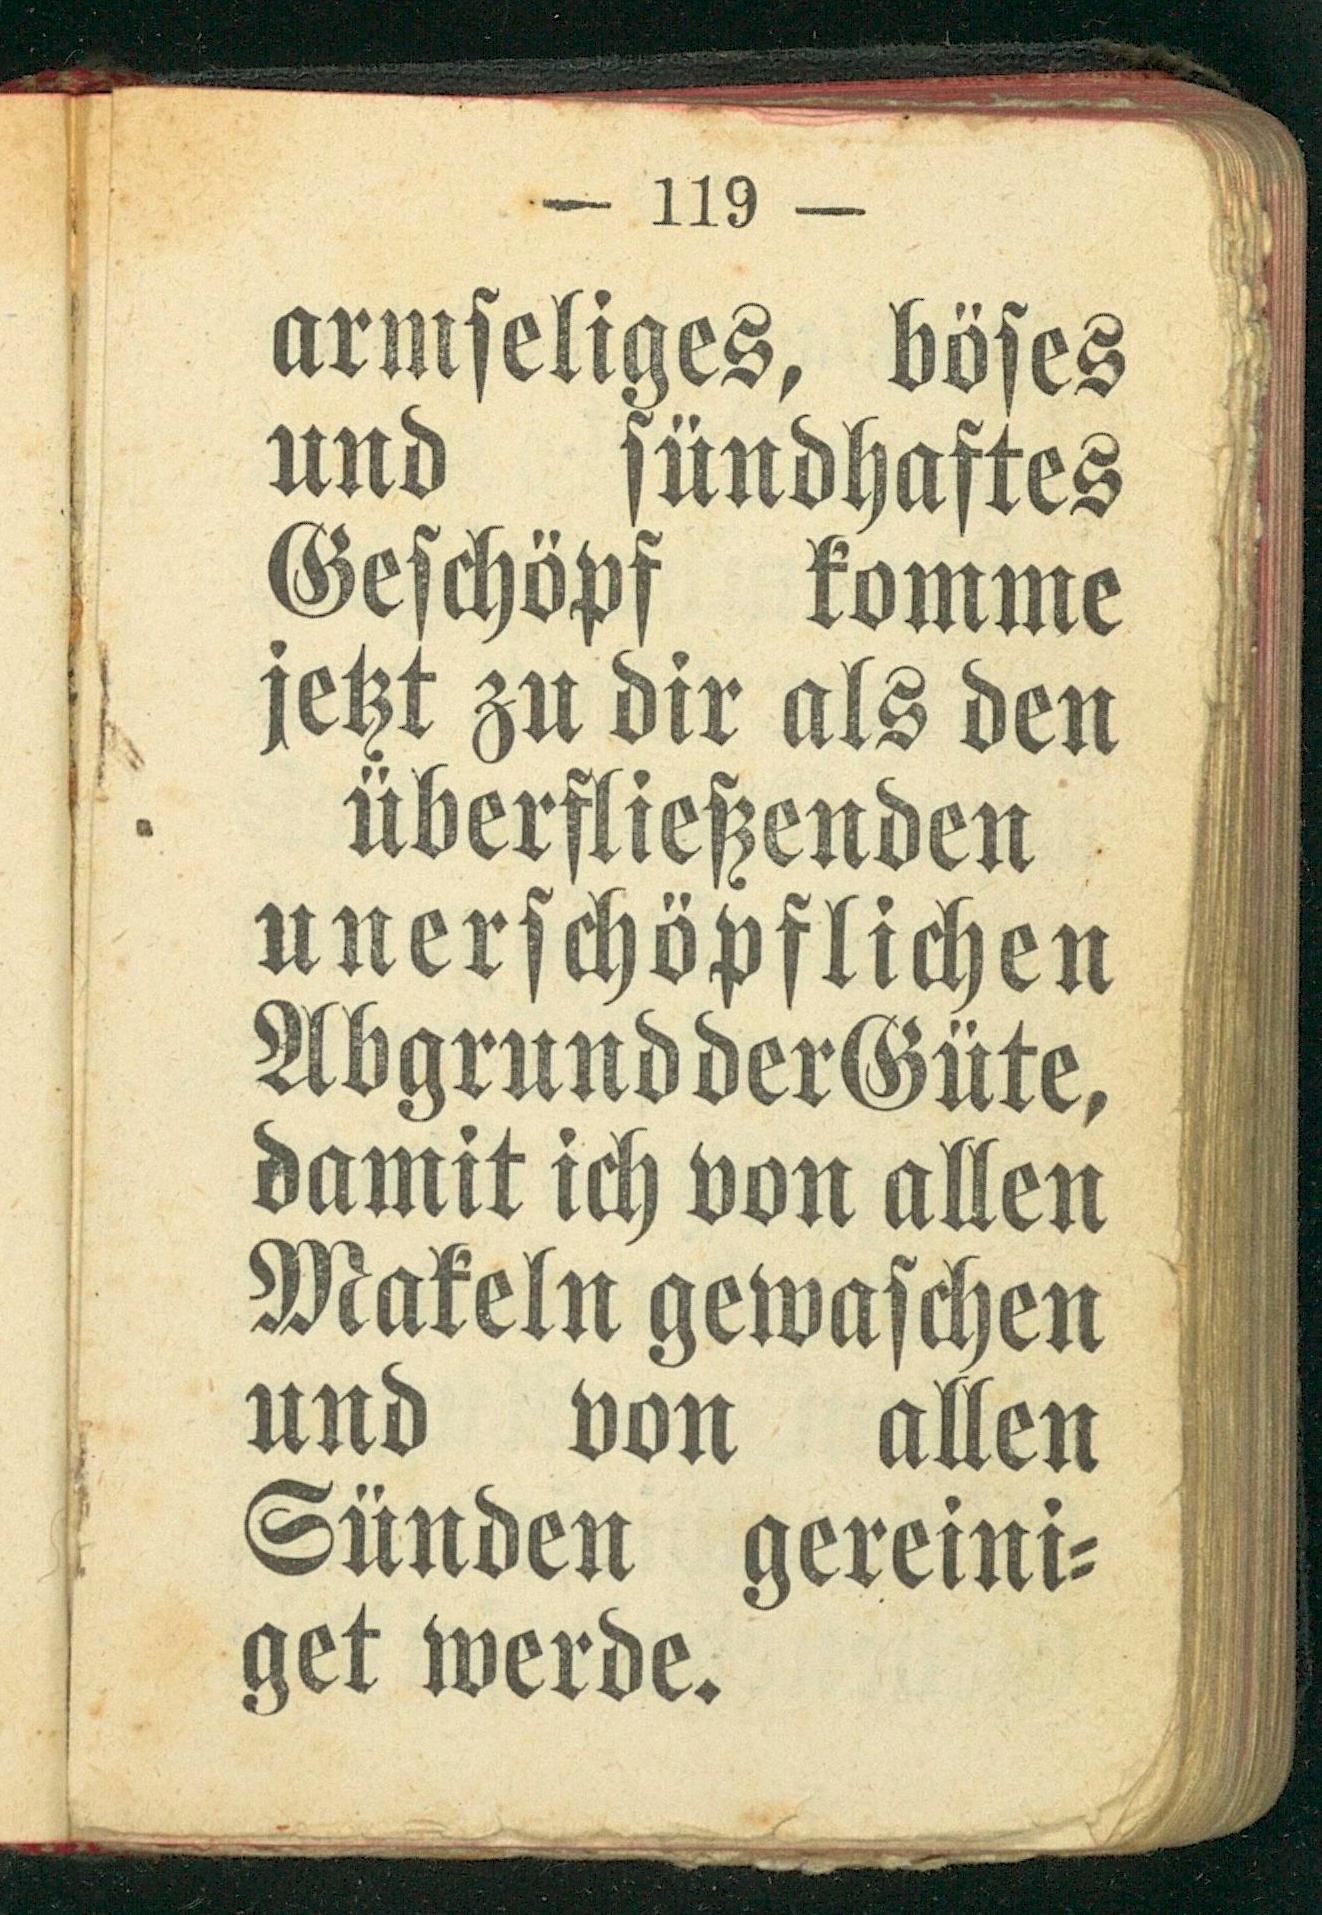 — 119 —
armseliges, böses
und sündhaftes
Geschöpf komme
jetzt zu dir als den
überfließenden
unerschöpflichen
Abgrund der Güte,
damit ich von allen
Makeln gewaschen
und von allen
Sünden gereini-
get werde.